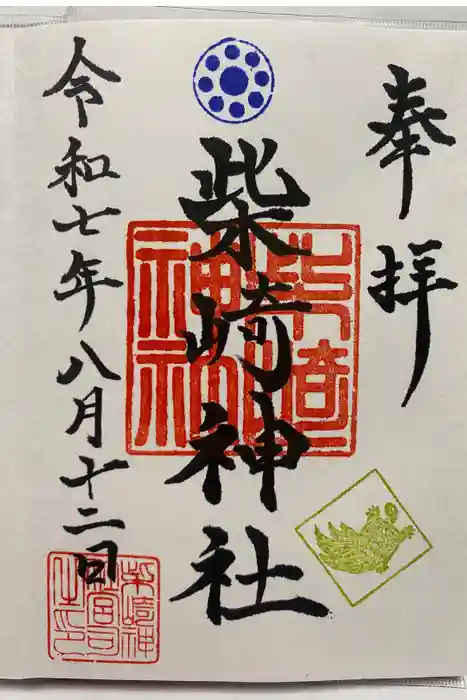 奉拝
柴崎神社
令和七年八月十二日
柴崎神社
柴崎神
社宮司
之印